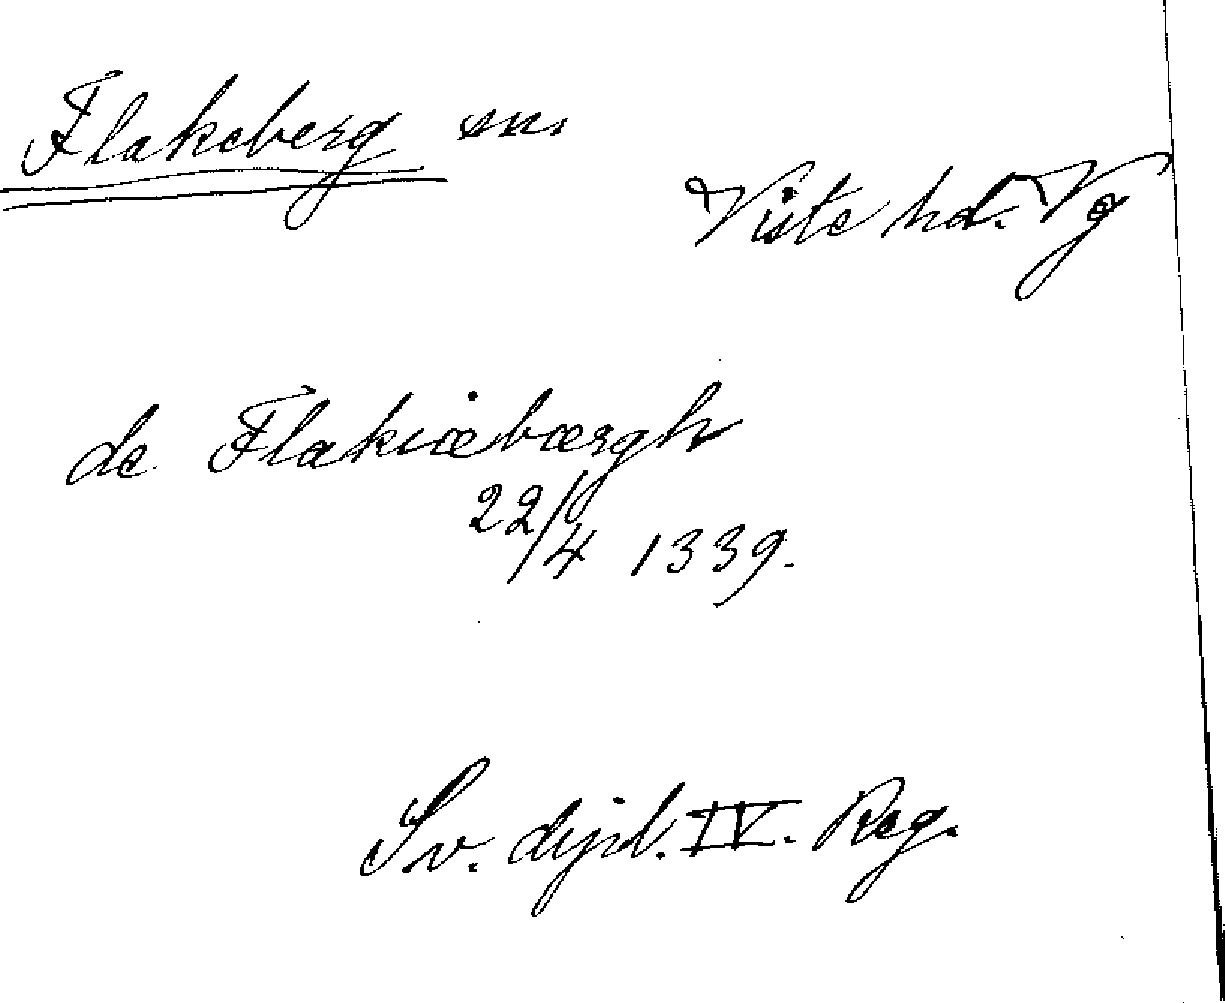 Flakeberg sn.
Viste hd. Vg
de Flakiæbærgh
22/4 1339.
Sv. dipl. IV. Reg.